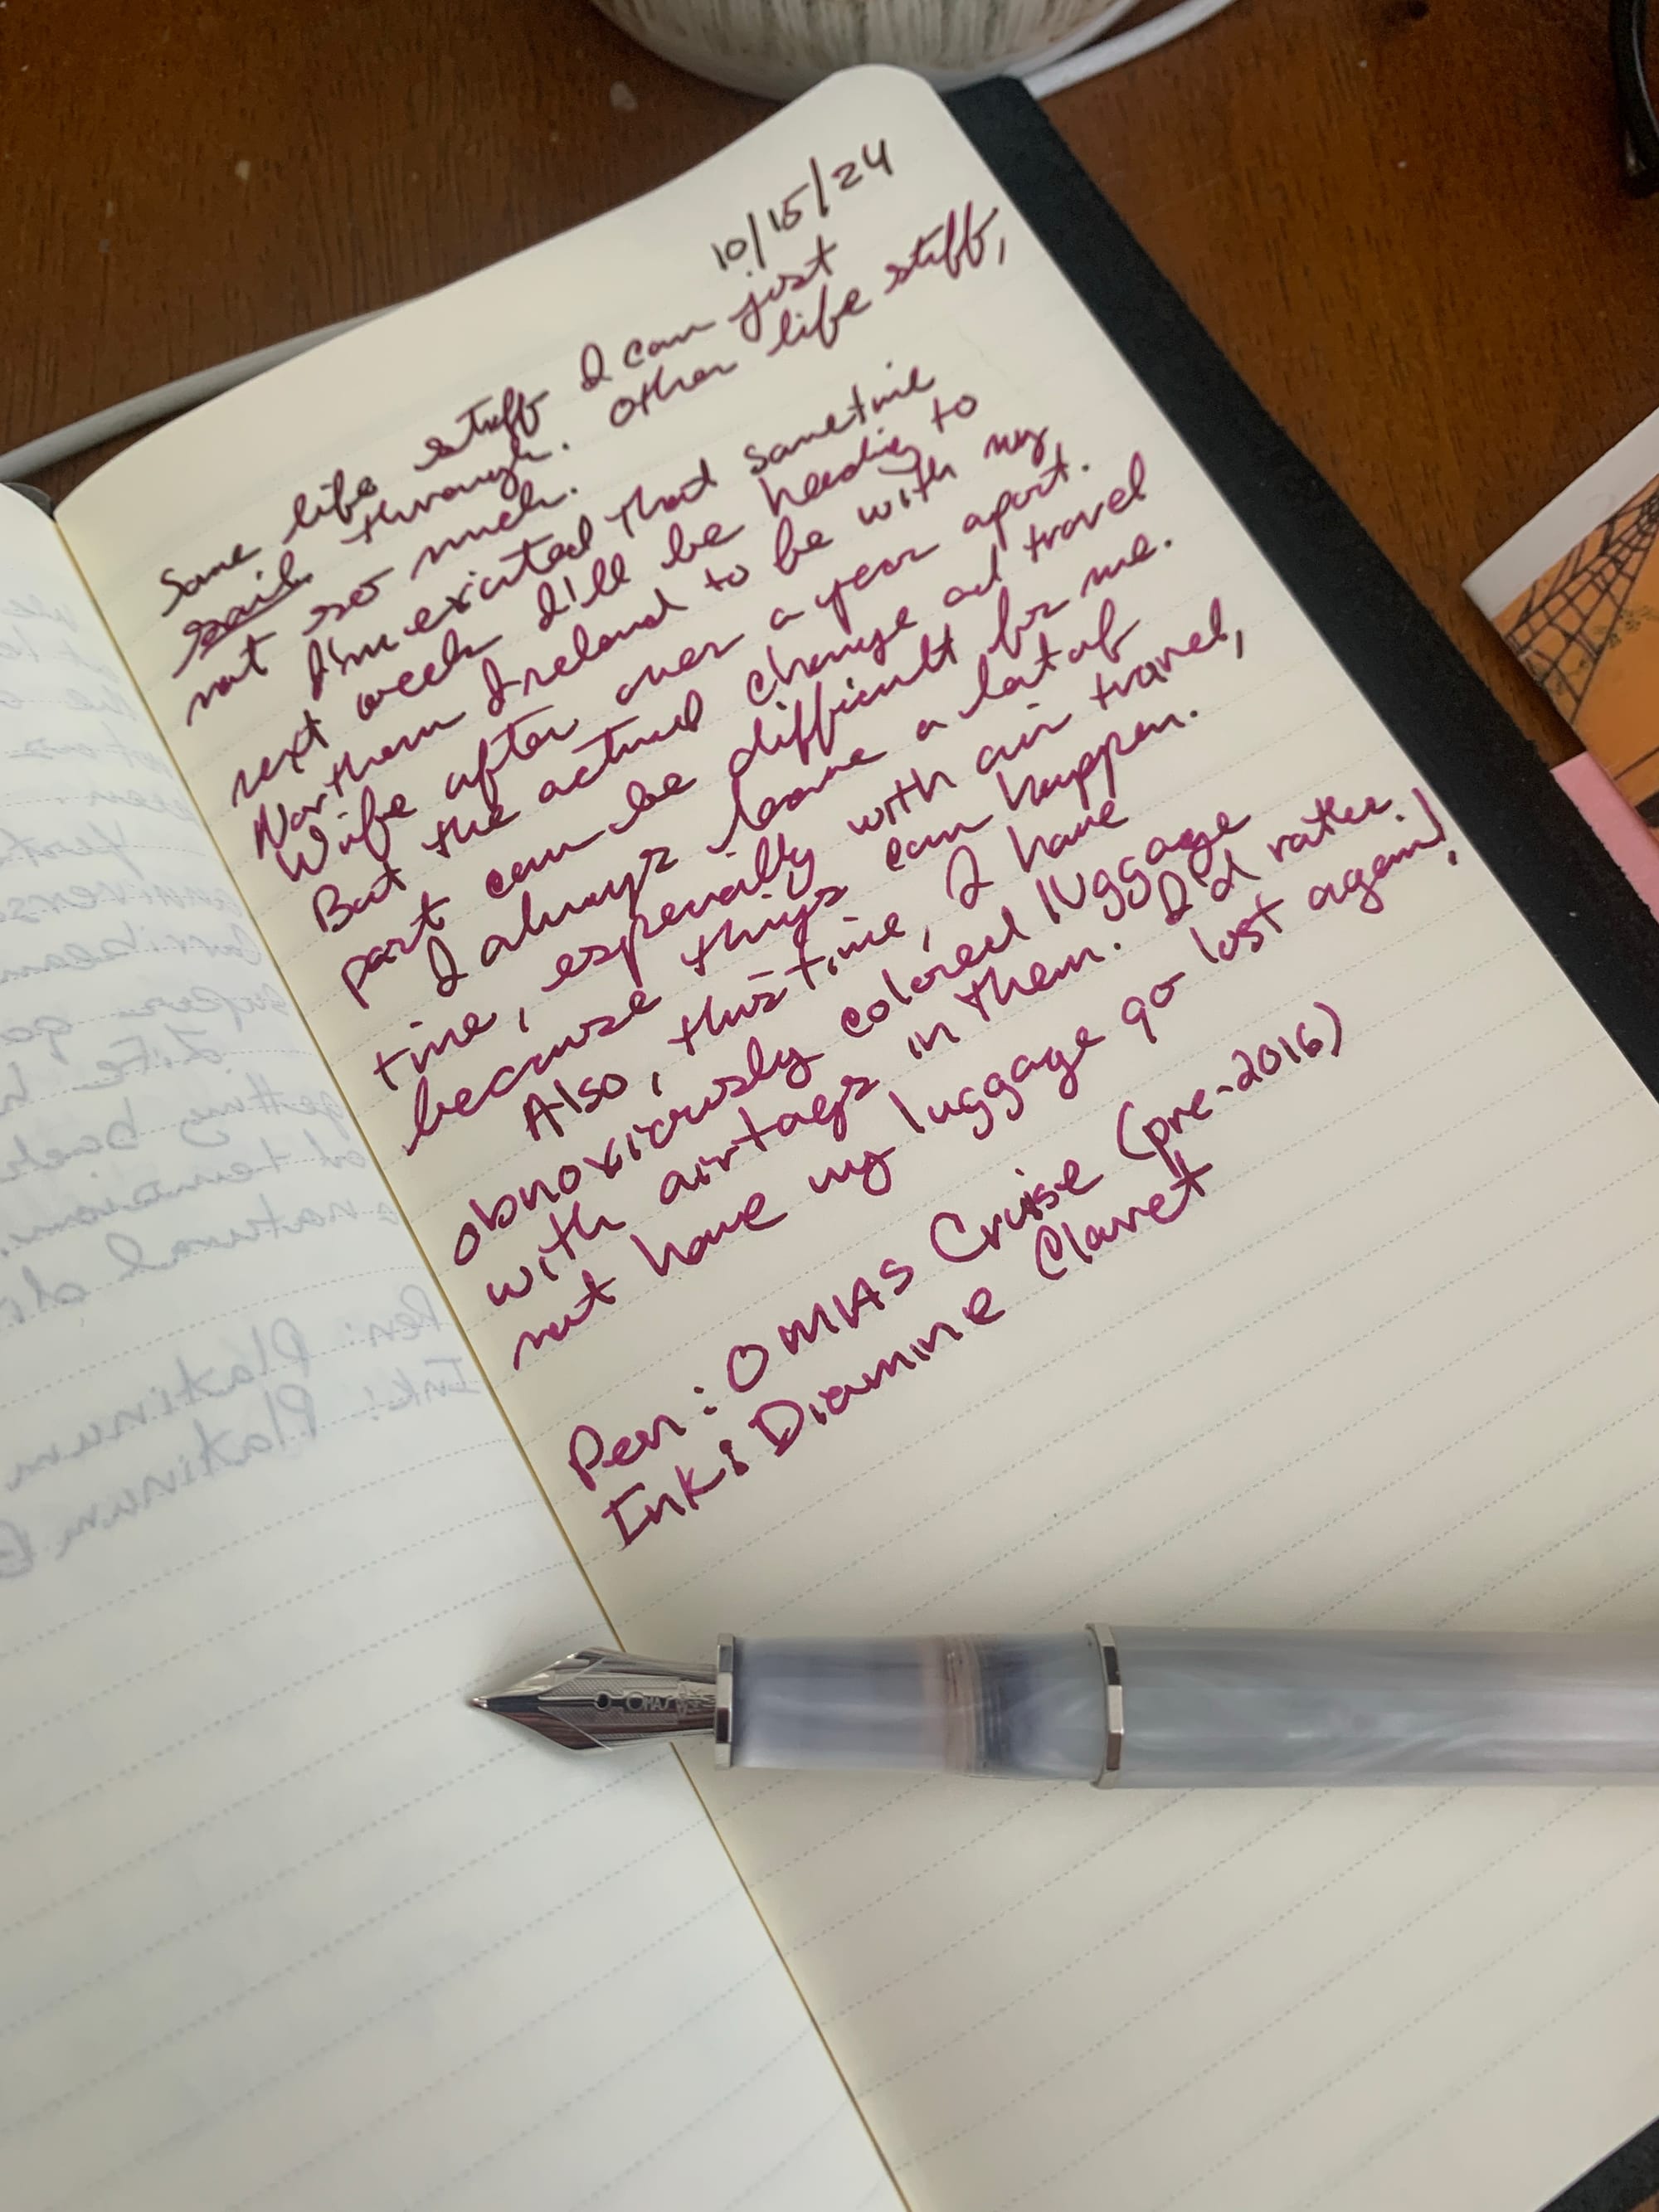 10/15/24
Some life stuff I can just
sail through. Other life stuff,
not so much.
I'm excited that sometime
next week I'll be heading to
Northern Ireland to be with my
Wife after over a year apart.
But the actual change and travel
part can be difficult for me.
I always leave a lot of
time, especially with air travel,
because things can happen.
Also, this time, I have
obnoxiously colored luggage
with airtags in them. I'd rather
not have my luggage go lost again!
Pen: OMAS Cruise (pre-2016)
Ink: Diamine Claret
getting back
natural
Pen: Platinum
Ink: Platinum
OMAS